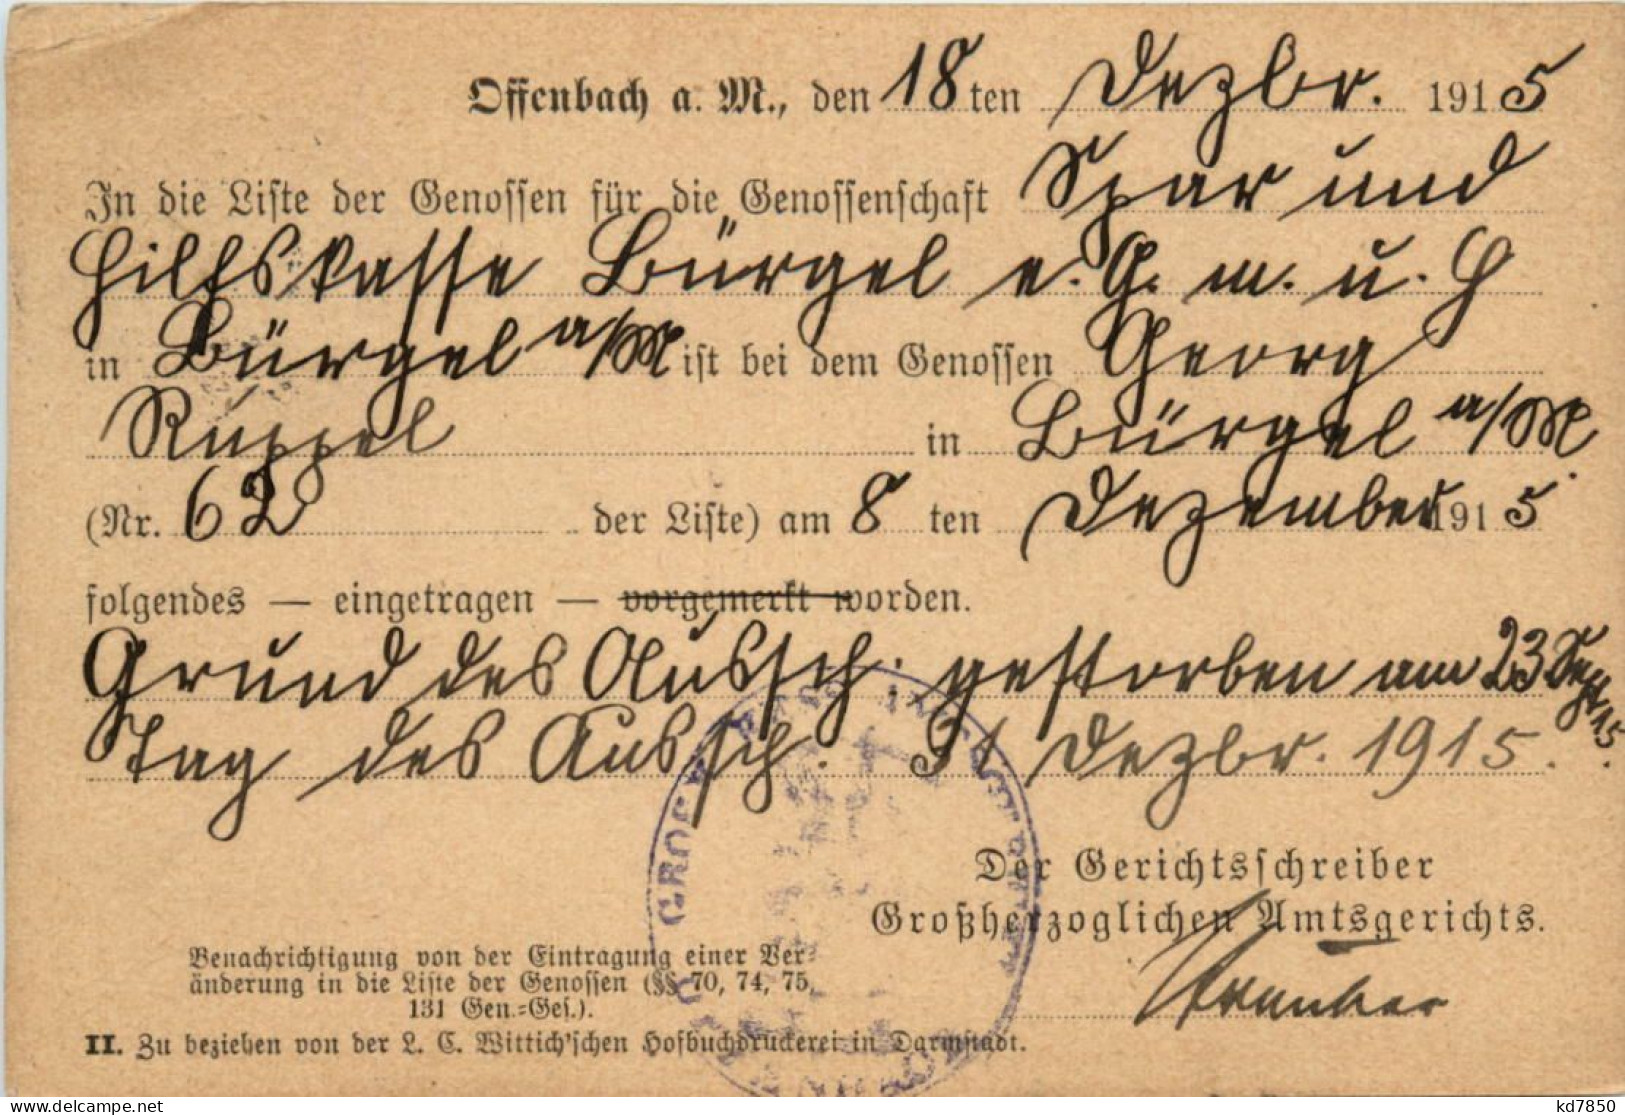 Offenbach a. M., den 18ten Dezbr. 1915
In die Liste der Genossen für die Genossenschaft Spar und
Hilfskasse Bürgel e. G. m. u. H
in Bürgel a/M ist bei dem Genossen Georg
Ruppel in Bürgel a/M.
(Nr. 62 der Liste) am 8 ten Dezember 1915
folgendes — eingetragen — vorgemerkt worden.
Grund des Aussch. gestorben am 23 Sept. 15.
Tag des Aussch. 31 Dezbr. 1915.
Der Gerichtsschreiber
Großherzoglichen Amtsgerichts.
Benachrichtigung von der Eintragung einer Ver-
änderung in die Liste der Genossen (§§ 70, 74, 75,
131 Gen.-Ges.).
II. Zu beziehen von der L. C. Wittich'schen Hofbuchdruckerei in Darmstadt.
kd7850